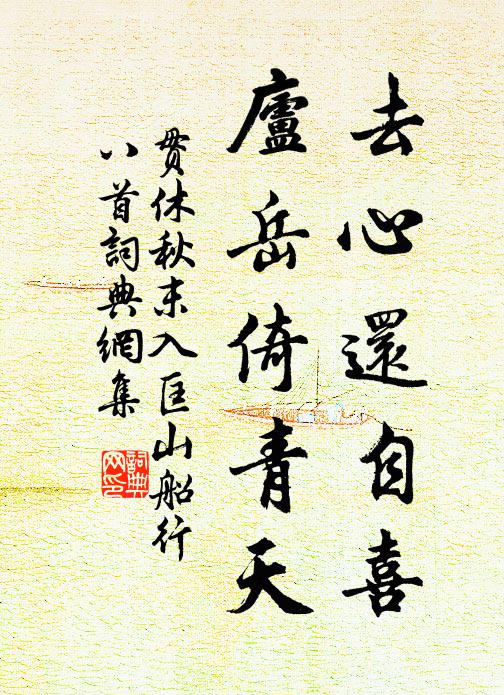 去心還自喜
廬岳倚青天
貫休秋末入匡山船行
八首詞典網集
詞典
网印